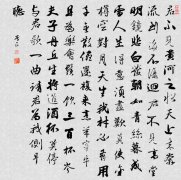 君不見黃河之水天上來奔
流到海不復迴君不見高堂
明鏡悲白髮朝如青絲暮成
雪人生得意須盡歡莫使金
樽空對月天生我材必有用
千金散盡還復來烹羊宰牛
且為樂會須一飲三百杯岑
夫子丹丘生將進酒杯莫停
與君歌一曲請君為我側耳
聽